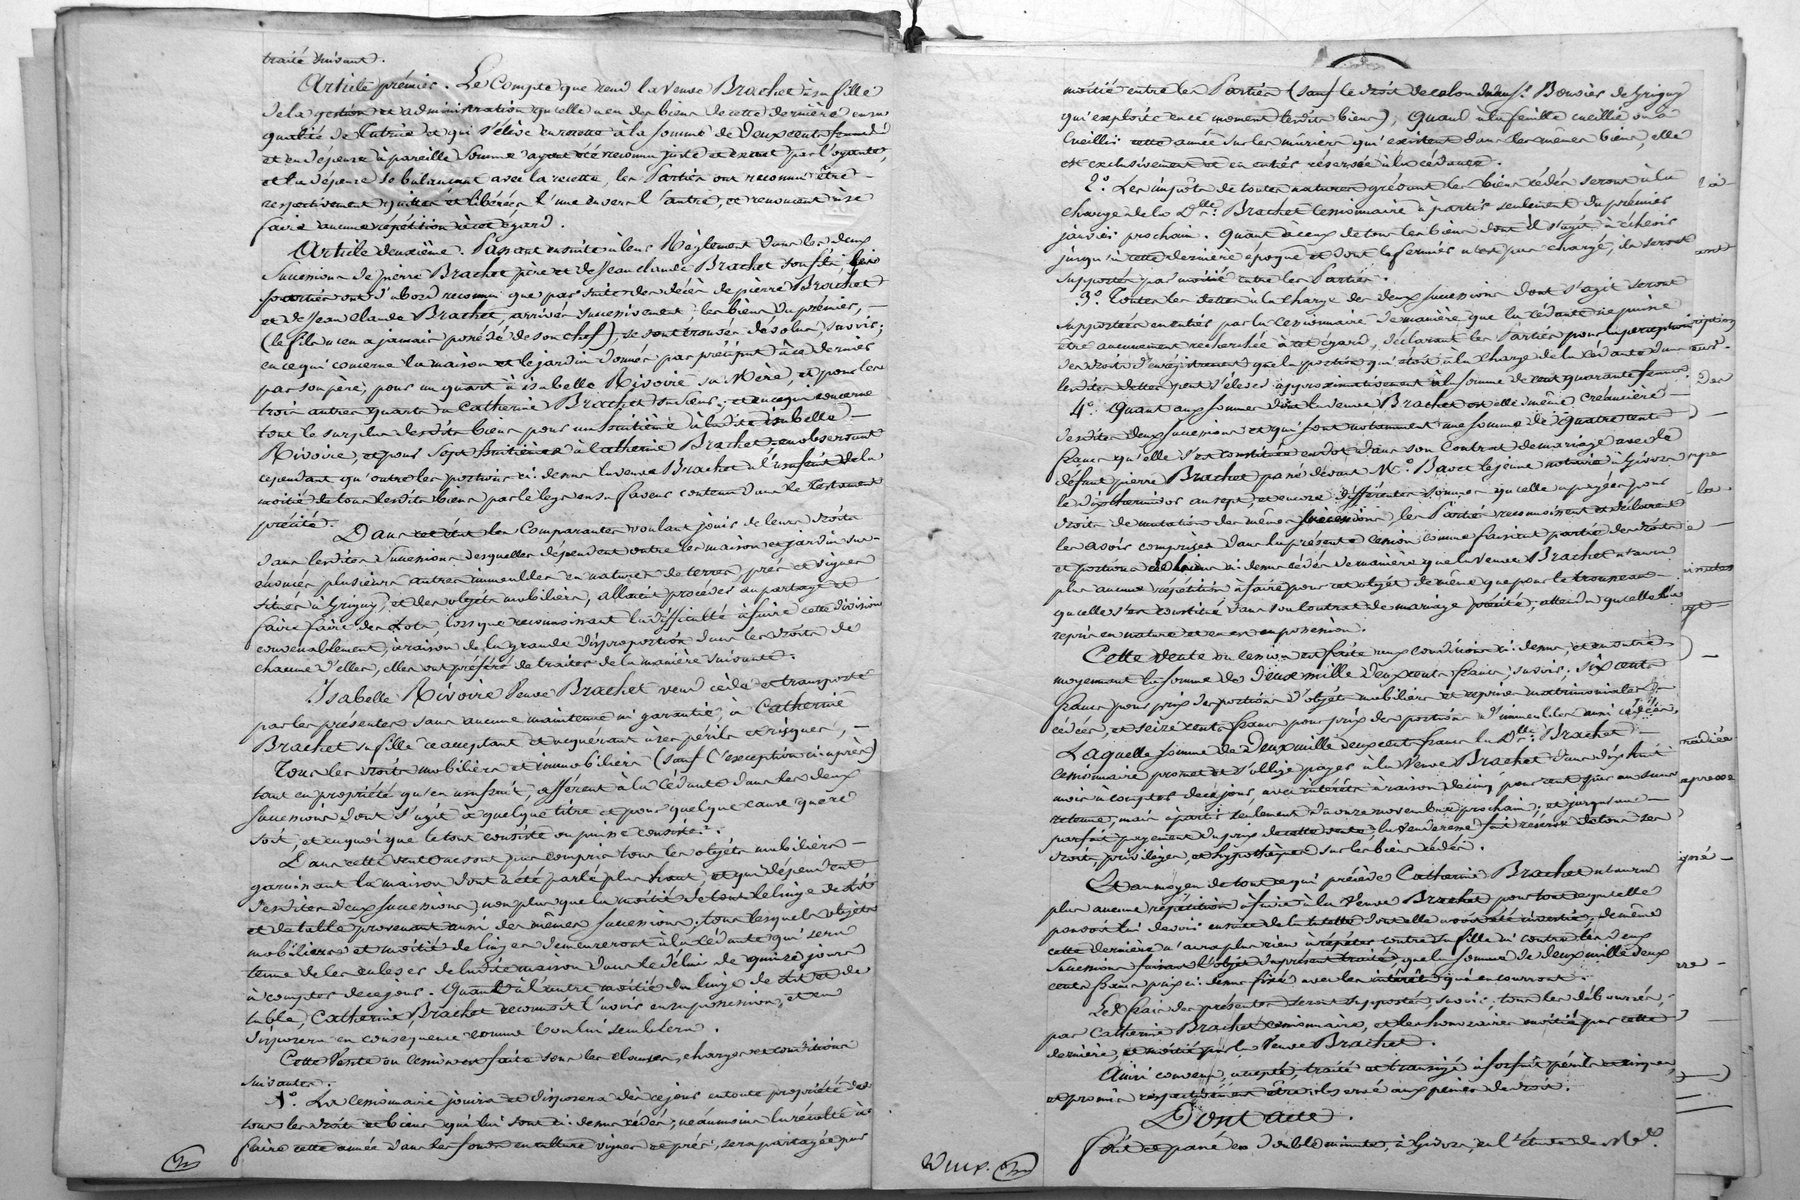 traité suivant.
Article premier. Le Compte que rend la Veuve Brachet à sa fille
de la gestion et administration qu'elle a eu des biens de cette dernière en sa
qualité de Tutrice et qui s'élève en recette à la somme de deux cents
et en dépense à pareille somme ayant été reconnu juste et exact par l'oyante,
et la dépense se balançant avec la recette, les Parties ont reconnu être
respectivement quittes et libérées l'une envers l'autre, et renoncent à se
faire aucune répétition à cet égard.
Article deuxième. Passant ensuite à leur Règlement dans les deux
successions de pierre Brachet père et de Jean claude Brachet son fils, les
parties ont d'abord reconnu que par suite des décès de pierre Brachet
et de Jean Claude Brachet, arrivés successivement, les biens du premier,
(le fils n'en a jamais possédé de son chef) se sont trouvés dévolus, savoir;
en ce qui concerne la maison et le jardin donnés par préciput à ce dernier
par son père, pour un quart à isabelle Rivoire sa Mère, et pour les
trois autres quarts à Catherine Brachet sa sœur; et en ce qui concerne
tout le surplus desdits biens pour un huitième à ladite isabelle
Rivoire, et pour sept huitièmes à Catherine Brachet, en observant
cependant qu'outre les portions ci-dessus la veuve Brachet a l'usufruit de la
moitié de tous lesdits biens par le legs en sa faveur contenu dans le testament
précité.
Dans cet état les Comparantes voulant jouir de leurs droits
dans lesdites successions desquelles dépendent outre les maison et jardin sus-
énoncés plusieurs autres immeubles en nature de terres, prés et vignes
situés à Grigny, et des objets mobiliers, allaient procéder au partage et
faire faire des Lots, lorsque reconnaissant la difficulté à faire cette division
convenablement, à raison de la grande disproportion dans les droits de
chacune d'elles, elles ont préféré de traiter de la manière suivante.
Isabelle Rivoire Veuve Brachet vend cède et transporte
par les présentes sans aucune maintenue ni garantie, à Catherine
Brachet sa fille ce acceptant et acquérant à ses périls et risques,
Tous les droits mobiliers et immobiliers (sauf l'exception ci-après)
tant en propriété qu'en usufruit, afférent à la cédante dans les deux
successions dont s'agit à quelque titre et pour quelque cause que ce
soit, et en quoi que le tout consiste ou puisse consister.
Dans cette vente ne sont pas compris tous les objets mobiliers
garnissant la maison dont a été parlé plus haut, et qui dépendent
desdites deux successions, non plus que la moitié de tout le linge de lit
et de table provenant aussi des mêmes successions, tous lesquels objets
mobiliers et moitié de linges demeureront à la cédante qui sera
tenue de les enlever de ladite maison dans le délai de quinze jours
à compter de ce jour. Quant à l'autre moitié du linge de lit et de
table, Catherine Brachet reconnoît l'avoir en sa possession, et en
disposera en conséquence comme bon lui semblera.
Cette Vente ou Cession est faite sous les clauses, charges et conditions
suivantes.
1º. La cessionnaire jouira et disposera dès ce jour en toute propriété de
tous les droits et biens qui lui sont ci-dessus cédés; néanmoins la récolte à
faire cette année dans les fonds en culture vignes et prés, sera partagée par
moitié entre les Parties (sauf le droit de colon du Sr. Bouvier de Grigny
qui exploite en ce moment lesdits biens); Quant à la feuille cueillie ou à
cueillir cette année sur les mûriers qui existent dans les mêmes biens, elle
est exclusivement et en entier réservée à la cédante.
2º. Les impôts de toutes natures grévant les biens cédés seront à la
charge de la Dlle. Brachet Cessionnaire à partir seulement du premier
janvier prochain. Quant à ceux de tous les biens dont il s'agit à échoir
jusqu'à cette dernière époque et dont le fermier n'est pas chargé, ils seront
supportés par moitié entre les Parties.
3º. Toutes les dettes à la charge des deux successions dont s'agit seront
supportées en entier par la cessionnaire de manière que la cédante ne puisse
être aucunement recherchée à cet égard, déclarant les Parties pour la perception
des droits d'enregistrement que la portion qui étoit à la charge de la cédante dans
lesdites dettes peut s'élever approximativement à la somme de cent quarante francs.
4º. Quant aux sommes dont la veuve Brachet est elle même Créancière
desdites deux successions et qui sont notamment une somme de quatre cents
francs qu'elle s'est constituée en dot dans son Contrat de mariage avec le
défunt pierre Brachet passé devant Me. Bavet le jeune notaire à Givors
le dix thermidor an sept, et encore différentes sommes qu'elle a payées pour
droits de mutation des mêmes successions, les Parties reconnaissent et déclarent
les avoir comprises dans la présente cession comme faisant partie des droits
et portions de biens ci-dessus cédés de manière que la Veuve Brachet n'aura
plus aucune répétition à faire pour cet objet de même que pour le trousseau
qu'elle s'est constitué dans son Contrat de mariage précité, attendu qu'elle l'a
repris en nature et en est en possession.
Cette Vente ou cession est faite aux conditions ci-dessus, et en outre
moyennant la somme de deux mille deux cents francs; savoir, six cents
francs pour prix des portions d'objets mobiliers et reprises matrimoniales
cédées, et seize cents francs pour prix des portions d'immeubles aussi cédées,
Laquelle somme de deux mille deux cents francs la Dlle. Brachet
cessionnaire promet et s'oblige payer à la Veuve Brachet dans dix huit
mois à compter de ce jour, avec intérêts à raison de cinq pour cent par an sans
retenue, mais à partir seulement du onze novembre prochain; et jusqu'au
parfait payement du prix de cette vente, la venderesse fait réserve de tous ses
droits, privilèges, et hypothèques sur les biens cédés.
Et au moyen de tout ce qui précède Catherine Brachet n'aura
plus aucune répétition à faire à la Veuve Brachet pour tout ce qu'elle
pouvoit lui devoir ensuite de la tutelle dont elle avoit été investie, de même
cette dernière n'aura plus rien à répéter contre sa fille ni contre les deux
successions faisant l'objet du présent traité, que la somme de deux mille deux
cents francs prix ci-dessus fixé avec les intérêts qui en courront.
Les frais des présentes seront supportés, savoir: tous les déboursés,
par Catherine Brachet cessionnaire, et les honoraires moitié par cette
dernière, et moitié par la Veuve Brachet.
Ainsi convenu, accepté, traité et transigé à forfait périls et risques,
et promis respectivement être observé aux peines de droit.
Dont acte.
Fait et passé en double minute, à Givors, en l'étude de Me.